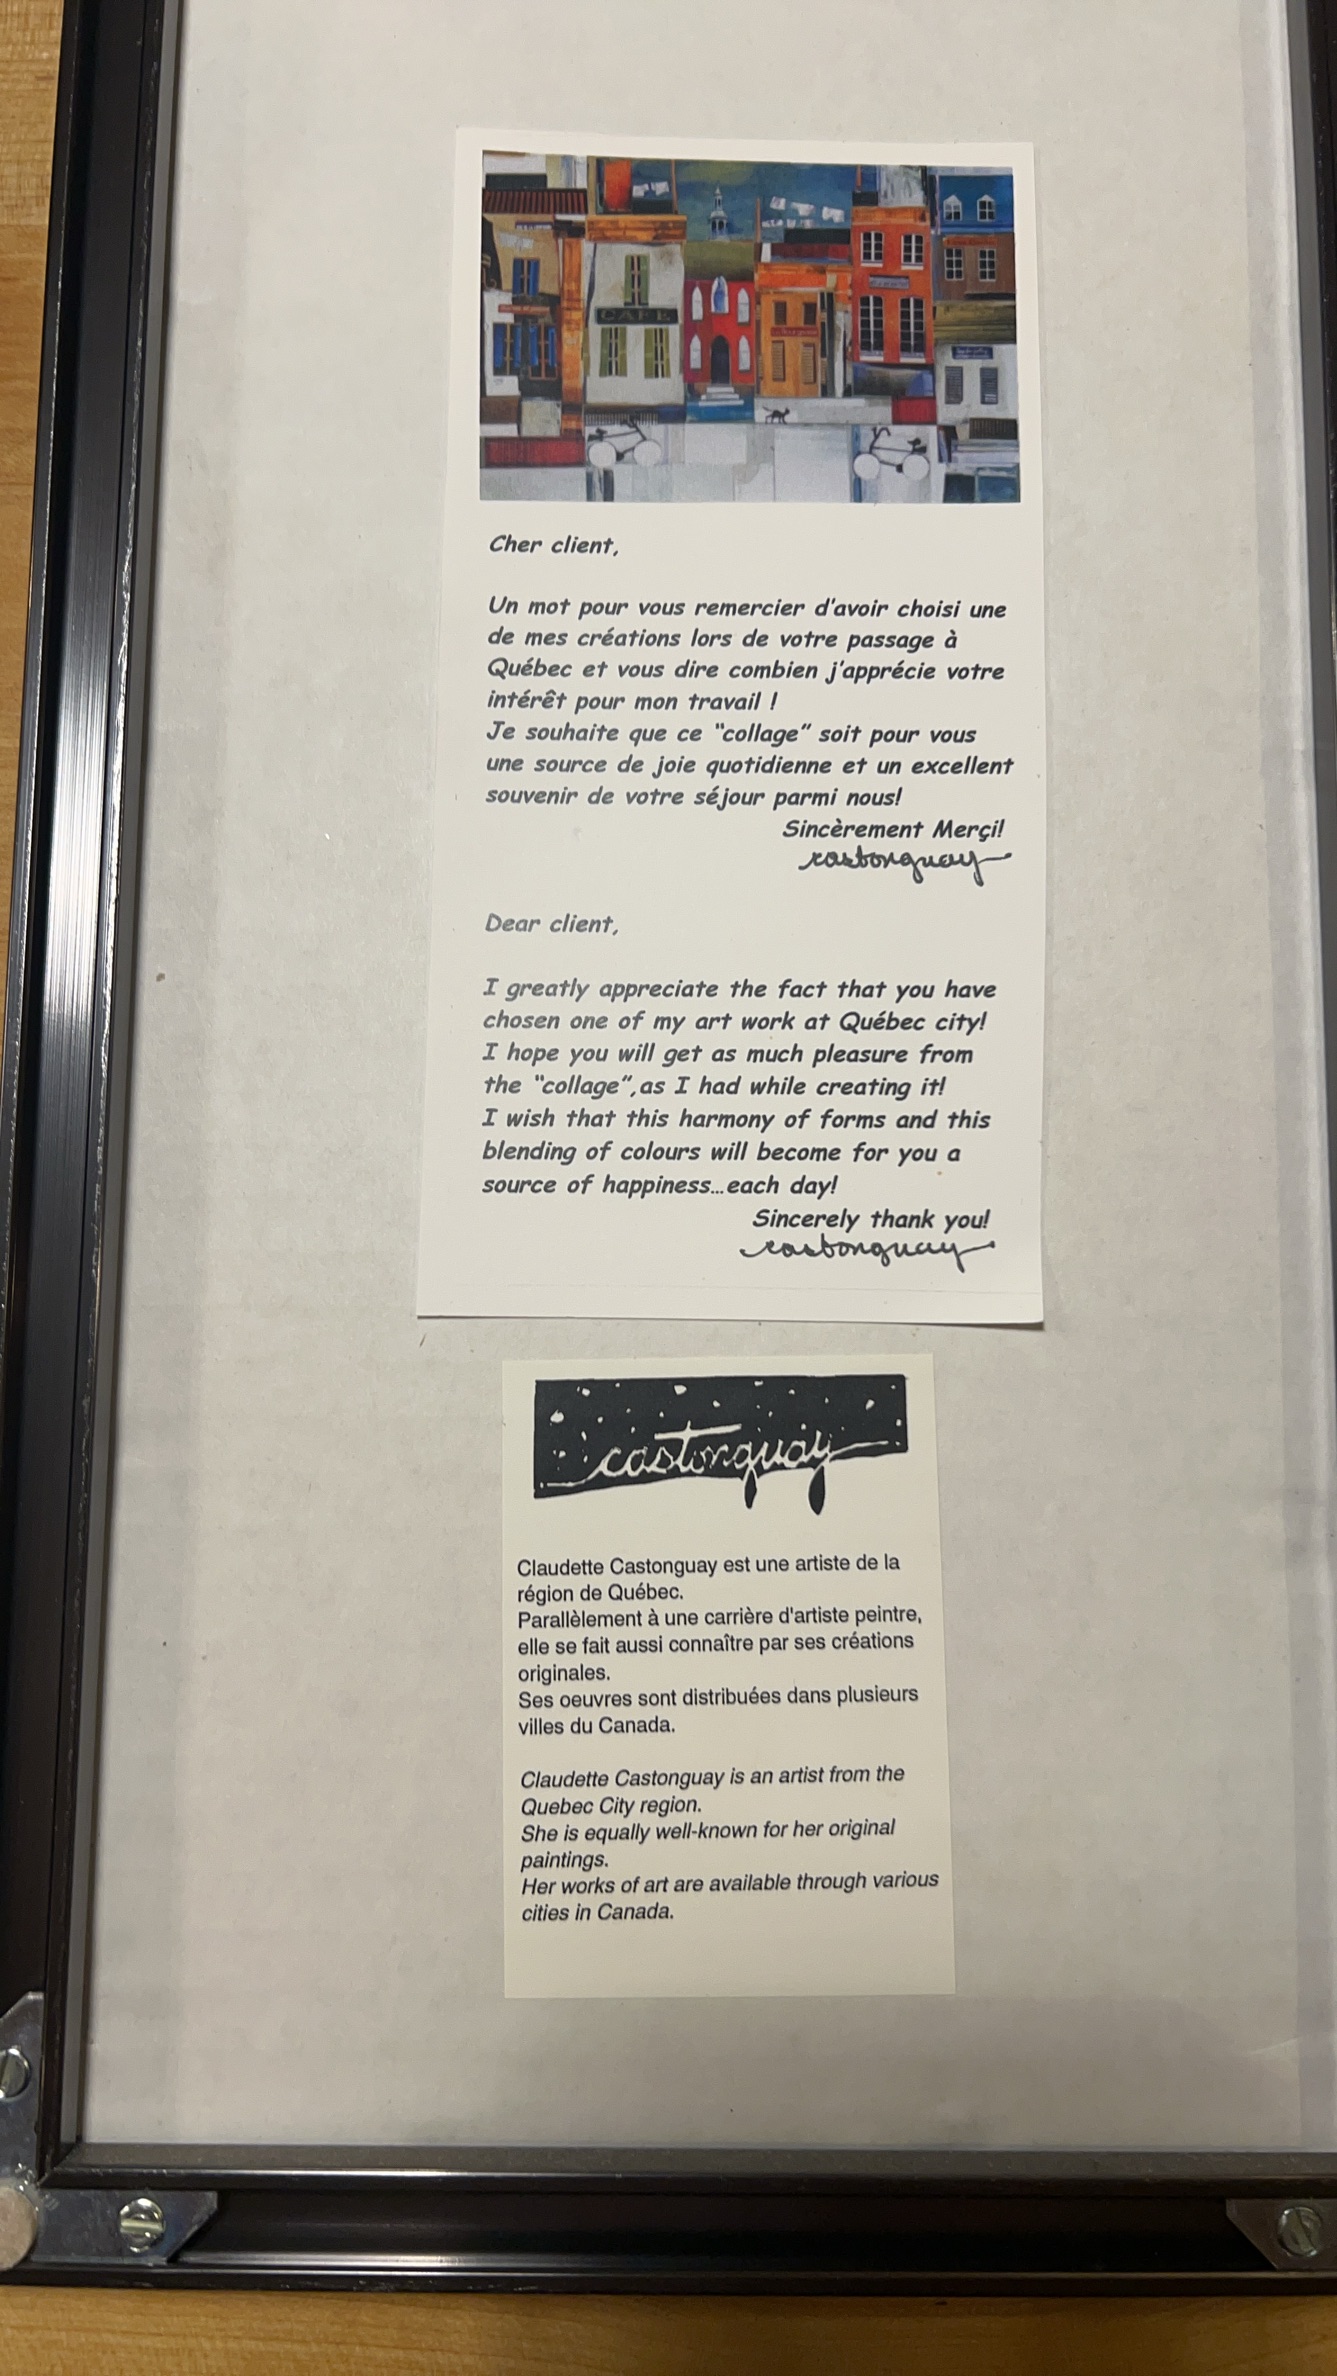 CAFE
Cher client,
Un mot pour vous remercier d'avoir choisi une
de mes créations lors de votre passage à
Québec et vous dire combien j'apprécie votre
intérêt pour mon travail !
Je souhaite que ce "collage" soit pour vous
une source de joie quotidienne et un excellent
souvenir de votre séjour parmi nous!
Sincèrement Merçi!
castonguay
Dear client,
I greatly appreciate the fact that you have
chosen one of my art work at Québec city!
I hope you will get as much pleasure from
the "collage",as I had while creating it!
I wish that this harmony of forms and this
blending of colours will become for you a
source of happiness...each day!
Sincerely thank you!
castonguay
castonguay
Claudette Castonguay est une artiste de la
région de Québec.
Parallèlement à une carrière d'artiste peintre,
elle se fait aussi connaître par ses créations
originales.
Ses oeuvres sont distribuées dans plusieurs
villes du Canada.
Claudette Castonguay is an artist from the
Quebec City region.
She is equally well-known for her original
paintings.
Her works of art are available through various
cities in Canada.